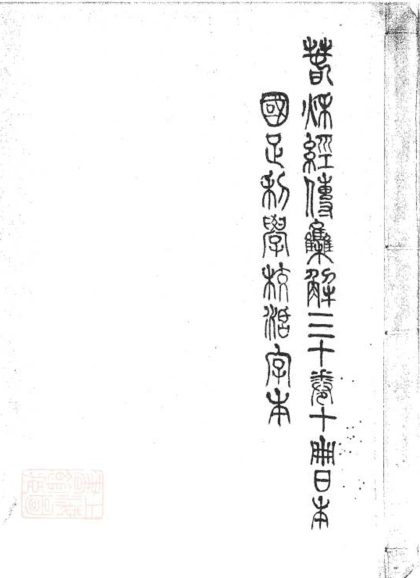 春秋經傳集解三十卷十冊日本
國足利學校活字本